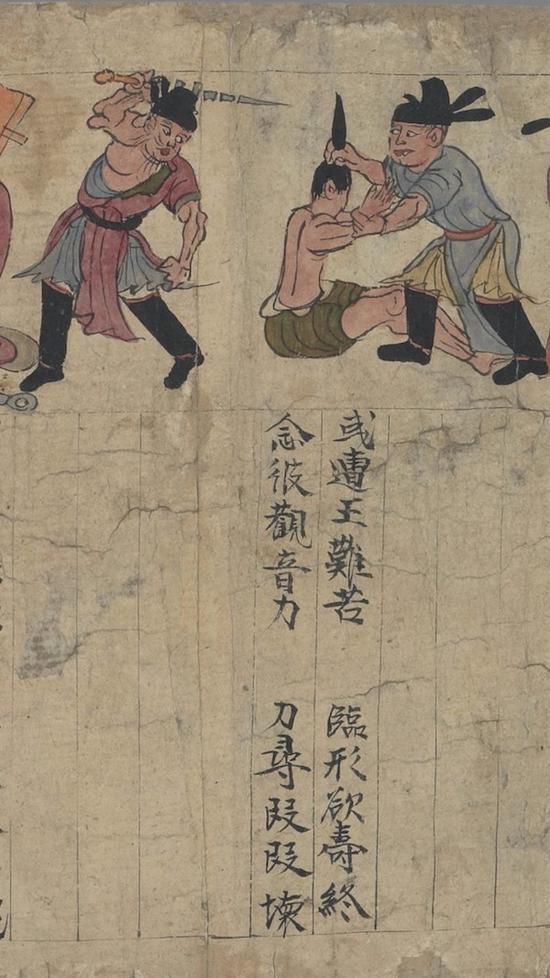 或遭王難苦 臨形欲壽終
念彼觀音力 刀尋段段壞